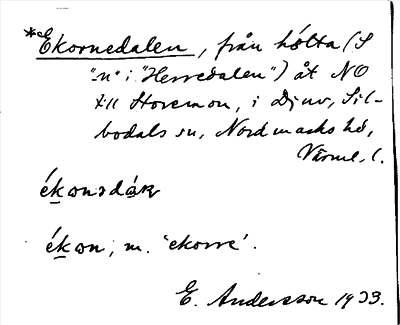 *Ekornedalen, från hólta (S
"-n" i "Herredalen") åt NO
till Storemon, i Djuv, Sil-
bodals sn, Nordmarks hd,
Värml. l.
ékɷn, m. 'ekorre'.
E. Andersson 1933.